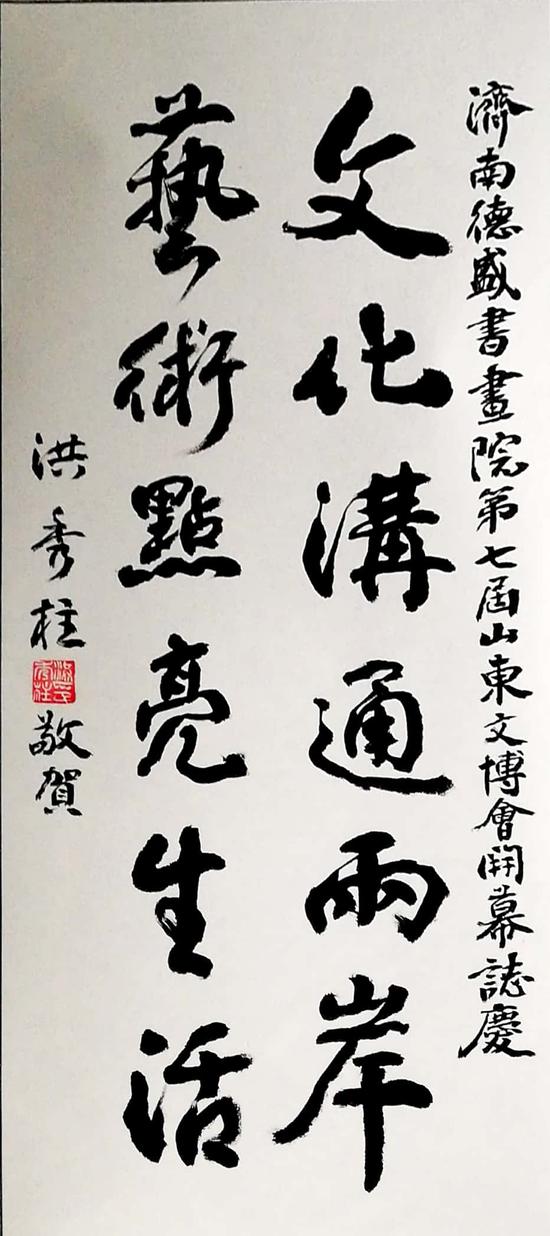 濟南德盛書畫院第七屆山東文博會開幕誌慶
文化溝通兩岸
藝術點亮生活
洪秀柱
敬賀